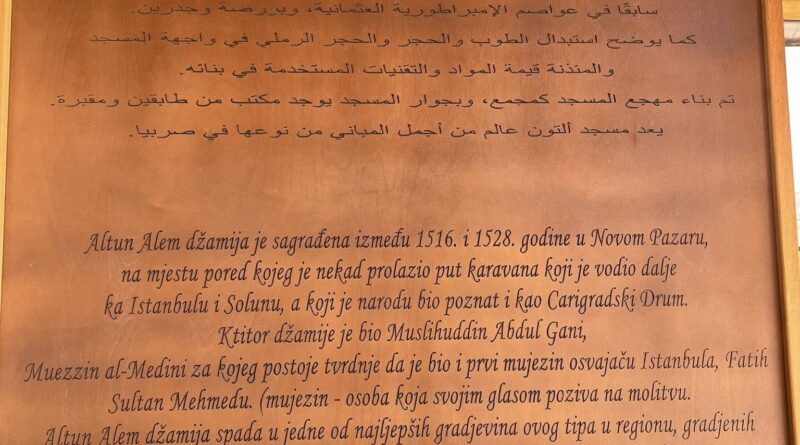 سابقًا في عواصم الإمبراطورية العثمانية، وبورصة وجدرين.
كما يوضح استبدال الطوب والحجر والحجر الرملي في واجهة المسجد
والمئذنة قيمة المواد والتقنيات المستخدمة في بنائه.
تم بناء مهجع المسجد كمجمع، وبجوار المسجد يوجد مكتب من طابقين ومقبرة.
يعد مسجد ألتون عالم من أجمل المباني من نوعها في صربيا.
Altun Alem džamija je sagrađena između 1516. i 1528. godine u Novom Pazaru,
na mjestu pored kojeg je nekad prolazio put karavana koji je vodio dalje
ka Istanbulu i Solunu, a koji je narodu bio poznat i kao Carigradski Drum.
Ktitor džamije je bio Muslihuddin Abdul Gani,
Muezzin al-Medini za kojeg postoje tvrdnje da je bio i prvi mujezin osvajaču Istanbula, Fatih
Sultan Mehmedu. (mujezin - osoba koja svojim glasom poziva na molitvu.
Altun Alem džamija spada u jedne od najljepših gradjevina ovog tipa u regionu, gradjenih